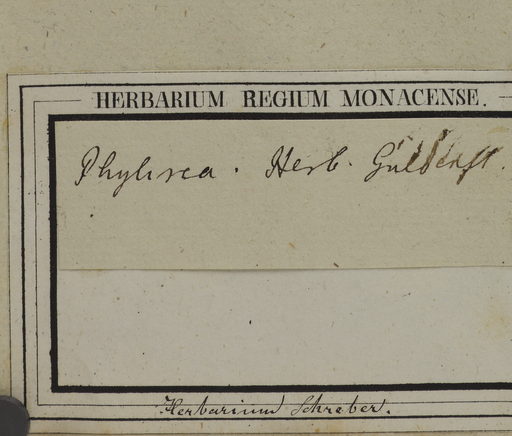 HERBARIUM REGIUM MONACENSE.
Phylirea. Herb. Güldenst.
Herbarium Schreber.